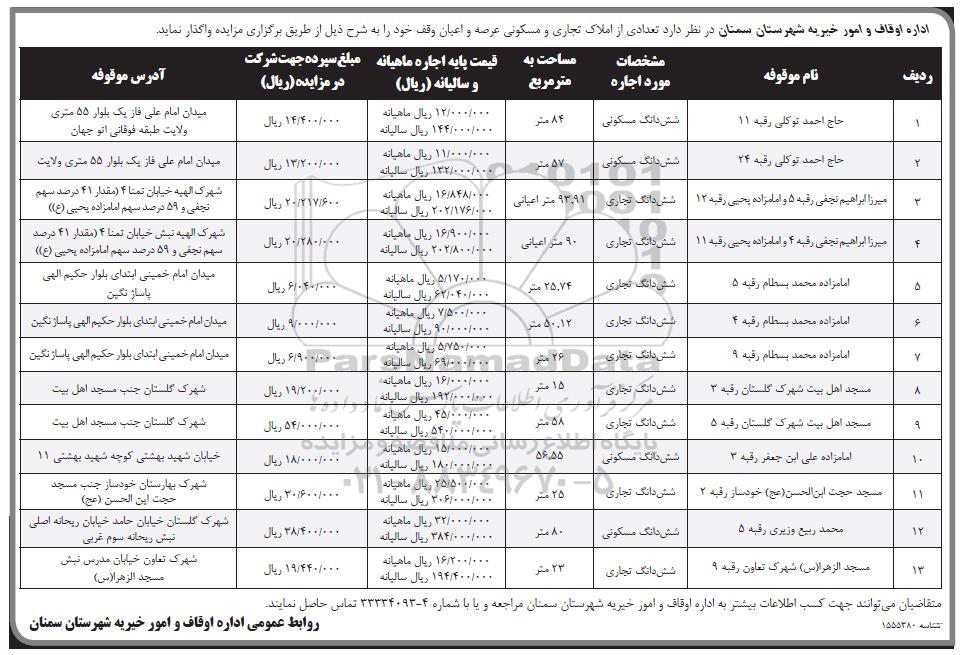 اداره اوقاف و امور خیریه شهرستان سمنان در نظر دارد تعدادی از املاک تجاری و مسکونی عرصه و اعیان وقف خود را به شرح ذیل از طریق برگزاری مزایده واگذار نماید.
ردیف | نام موقوفه | مشخصات مورد اجاره | مساحت به مترمربع | قیمت پایه اجاره ماهیانه و سالیانه (ریال) | مبلغ سپرده جهت شرکت در مزایده (ریال) | آدرس موقوفه
۱ | حاج احمد توکلی رقبه ۱۱ | شش‌دانگ مسکونی | ۸۴ متر | ۱۲/۰۰۰/۰۰۰ ریال ماهیانه ۱۴۴/۰۰۰/۰۰۰ ریال سالیانه | ۱۴/۴۰۰/۰۰۰ ریال | میدان امام علی فاز یک بلوار ۵۵ متری ولایت طبقه فوقانی اتو جهان
۲ | حاج احمد توکلی رقبه ۲۴ | شش‌دانگ مسکونی | ۵۷ متر | ۱۱/۰۰۰/۰۰۰ ریال ماهیانه ۱۳۲/۰۰۰/۰۰۰ ریال سالیانه | ۱۳/۲۰۰/۰۰۰ ریال | میدان امام علی فاز یک بلوار ۵۵ متری ولایت
۳ | میرزا ابراهیم نجفی رقبه ۵ و امامزاده یحیی رقبه ۱۲ | شش‌دانگ تجاری | ۹۳,۹۱ متر اعیانی | ۱۶/۸۴۸/۰۰۰ ریال ماهیانه ۲۰۲/۱۷۶/۰۰۰ ریال سالیانه | ۲۰/۲۱۷/۶۰۰ ریال | شهرک الهیه خیابان تمنا ۴ (مقدار ۴۱ درصد سهم نجفی و ۵۹ درصد سهم امامزاده یحیی (ع))
۴ | میرزا ابراهیم نجفی رقبه ۴ و امامزاده یحیی رقبه ۱۱ | شش‌دانگ تجاری | ۹۰ متر اعیانی | ۱۶/۹۰۰/۰۰۰ ریال ماهیانه ۲۰۲/۸۰۰/۰۰۰ ریال سالیانه | ۲۰/۲۸۰/۰۰۰ ریال | شهرک الهیه نبش خیابان تمنا ۴ (مقدار ۴۱ درصد سهم نجفی و ۵۹ درصد سهم امامزاده یحیی (ع))
۵ | امامزاده محمد بسطام رقبه ۵ | شش‌دانگ تجاری | ۲۵,۷۴ متر | ۵/۱۷۰/۰۰۰ ریال ماهیانه ۶۲/۰۴۰/۰۰۰ ریال سالیانه | ۶/۰۴۰/۰۰۰ ریال | میدان امام خمینی ابتدای بلوار حکیم الهی پاساژ نگین
۶ | امامزاده محمد بسطام رقبه ۴ | شش‌دانگ تجاری | ۵۰,۱۲ متر | ۷/۵۰۰/۰۰۰ ریال ماهیانه ۹۰/۰۰۰/۰۰۰ ریال سالیانه | ۹/۰۰۰/۰۰۰ ریال | میدان امام خمینی ابتدای بلوار حکیم الهی پاساژ نگین
۷ | امامزاده محمد بسطام رقبه ۹ | شش‌دانگ تجاری | ۲۶ متر | ۵/۷۵۰/۰۰۰ ریال ماهیانه ۶۹/۰۰۰/۰۰۰ ریال سالیانه | ۶/۹۰۰/۰۰۰ ریال | میدان امام خمینی ابتدای بلوار حکیم الهی پاساژ نگین
۸ | مسجد اهل بیت شهرک گلستان رقبه ۳ | شش‌دانگ تجاری | ۱۵ متر | ۱۶/۰۰۰/۰۰۰ ریال ماهیانه ۱۹۲/۰۰۰/۰۰۰ ریال سالیانه | ۱۹/۲۰۰/۰۰۰ ریال | شهرک گلستان جنب مسجد اهل بیت
۹ | مسجد اهل بیت شهرک گلستان رقبه ۵ | شش‌دانگ تجاری | ۵۸ متر | ۴۵/۰۰۰/۰۰۰ ریال ماهیانه ۵۴۰/۰۰۰/۰۰۰ ریال سالیانه | ۵۴/۰۰۰/۰۰۰ ریال | شهرک گلستان جنب مسجد اهل بیت
۱۰ | امامزاده علی ابن جعفر رقبه ۳ | شش‌دانگ مسکونی | ۵۶,۵۵ | ۱۵/۰۰۰/۰۰۰ ریال ماهیانه ۱۸۰/۰۰۰/۰۰۰ ریال سالیانه | ۱۸/۰۰۰/۰۰۰ ریال | خیابان شهید بهشتی کوچه شهید بهشتی ۱۱
۱۱ | مسجد حجت ابن‌الحسن(عج) خودساز رقبه ۲ | شش‌دانگ تجاری | ۲۵ متر | ۲۵/۵۰۰/۰۰۰ ریال ماهیانه ۳۰۶/۰۰۰/۰۰۰ ریال سالیانه | ۳۰/۶۰۰/۰۰۰ ریال | شهرک بهارستان خودساز جنب مسجد حجت ابن الحسن (عج)
۱۲ | محمد ربیع وزیری رقبه ۵ | شش‌دانگ مسکونی | ۸۰ متر | ۳۲/۰۰۰/۰۰۰ ریال ماهیانه ۳۸۴/۰۰۰/۰۰۰ ریال سالیانه | ۳۸/۴۰۰/۰۰۰ ریال | شهرک گلستان خیابان حامد خیابان ریحانه اصلی نبش ریحانه سوم غربی
۱۳ | مسجد الزهرا(س) شهرک تعاون رقبه ۹ | شش‌دانگ تجاری | ۲۳ متر | ۱۶/۲۰۰/۰۰۰ ریال ماهیانه ۱۹۴/۴۰۰/۰۰۰ ریال سالیانه | ۱۹/۴۴۰/۰۰۰ ریال | شهرک تعاون خیابان مدرس نبش مسجد الزهرا(س)
متقاضیان می‌توانند جهت کسب اطلاعات بیشتر به اداره اوقاف و امور خیریه شهرستان سمنان مراجعه و یا با شماره ۴-۳۳۳۳۴۰۹۳ تماس حاصل نمایند.
شناسه ۱۵۵۵۳۸۰
روابط عمومی اداره اوقاف و امور خیریه شهرستان سمنان
ParsNamadData
پایگاه اطلاع رسانی مناقصه و مزایده
۰۲۱-۸۸۳۴۹۶۷۰-۵